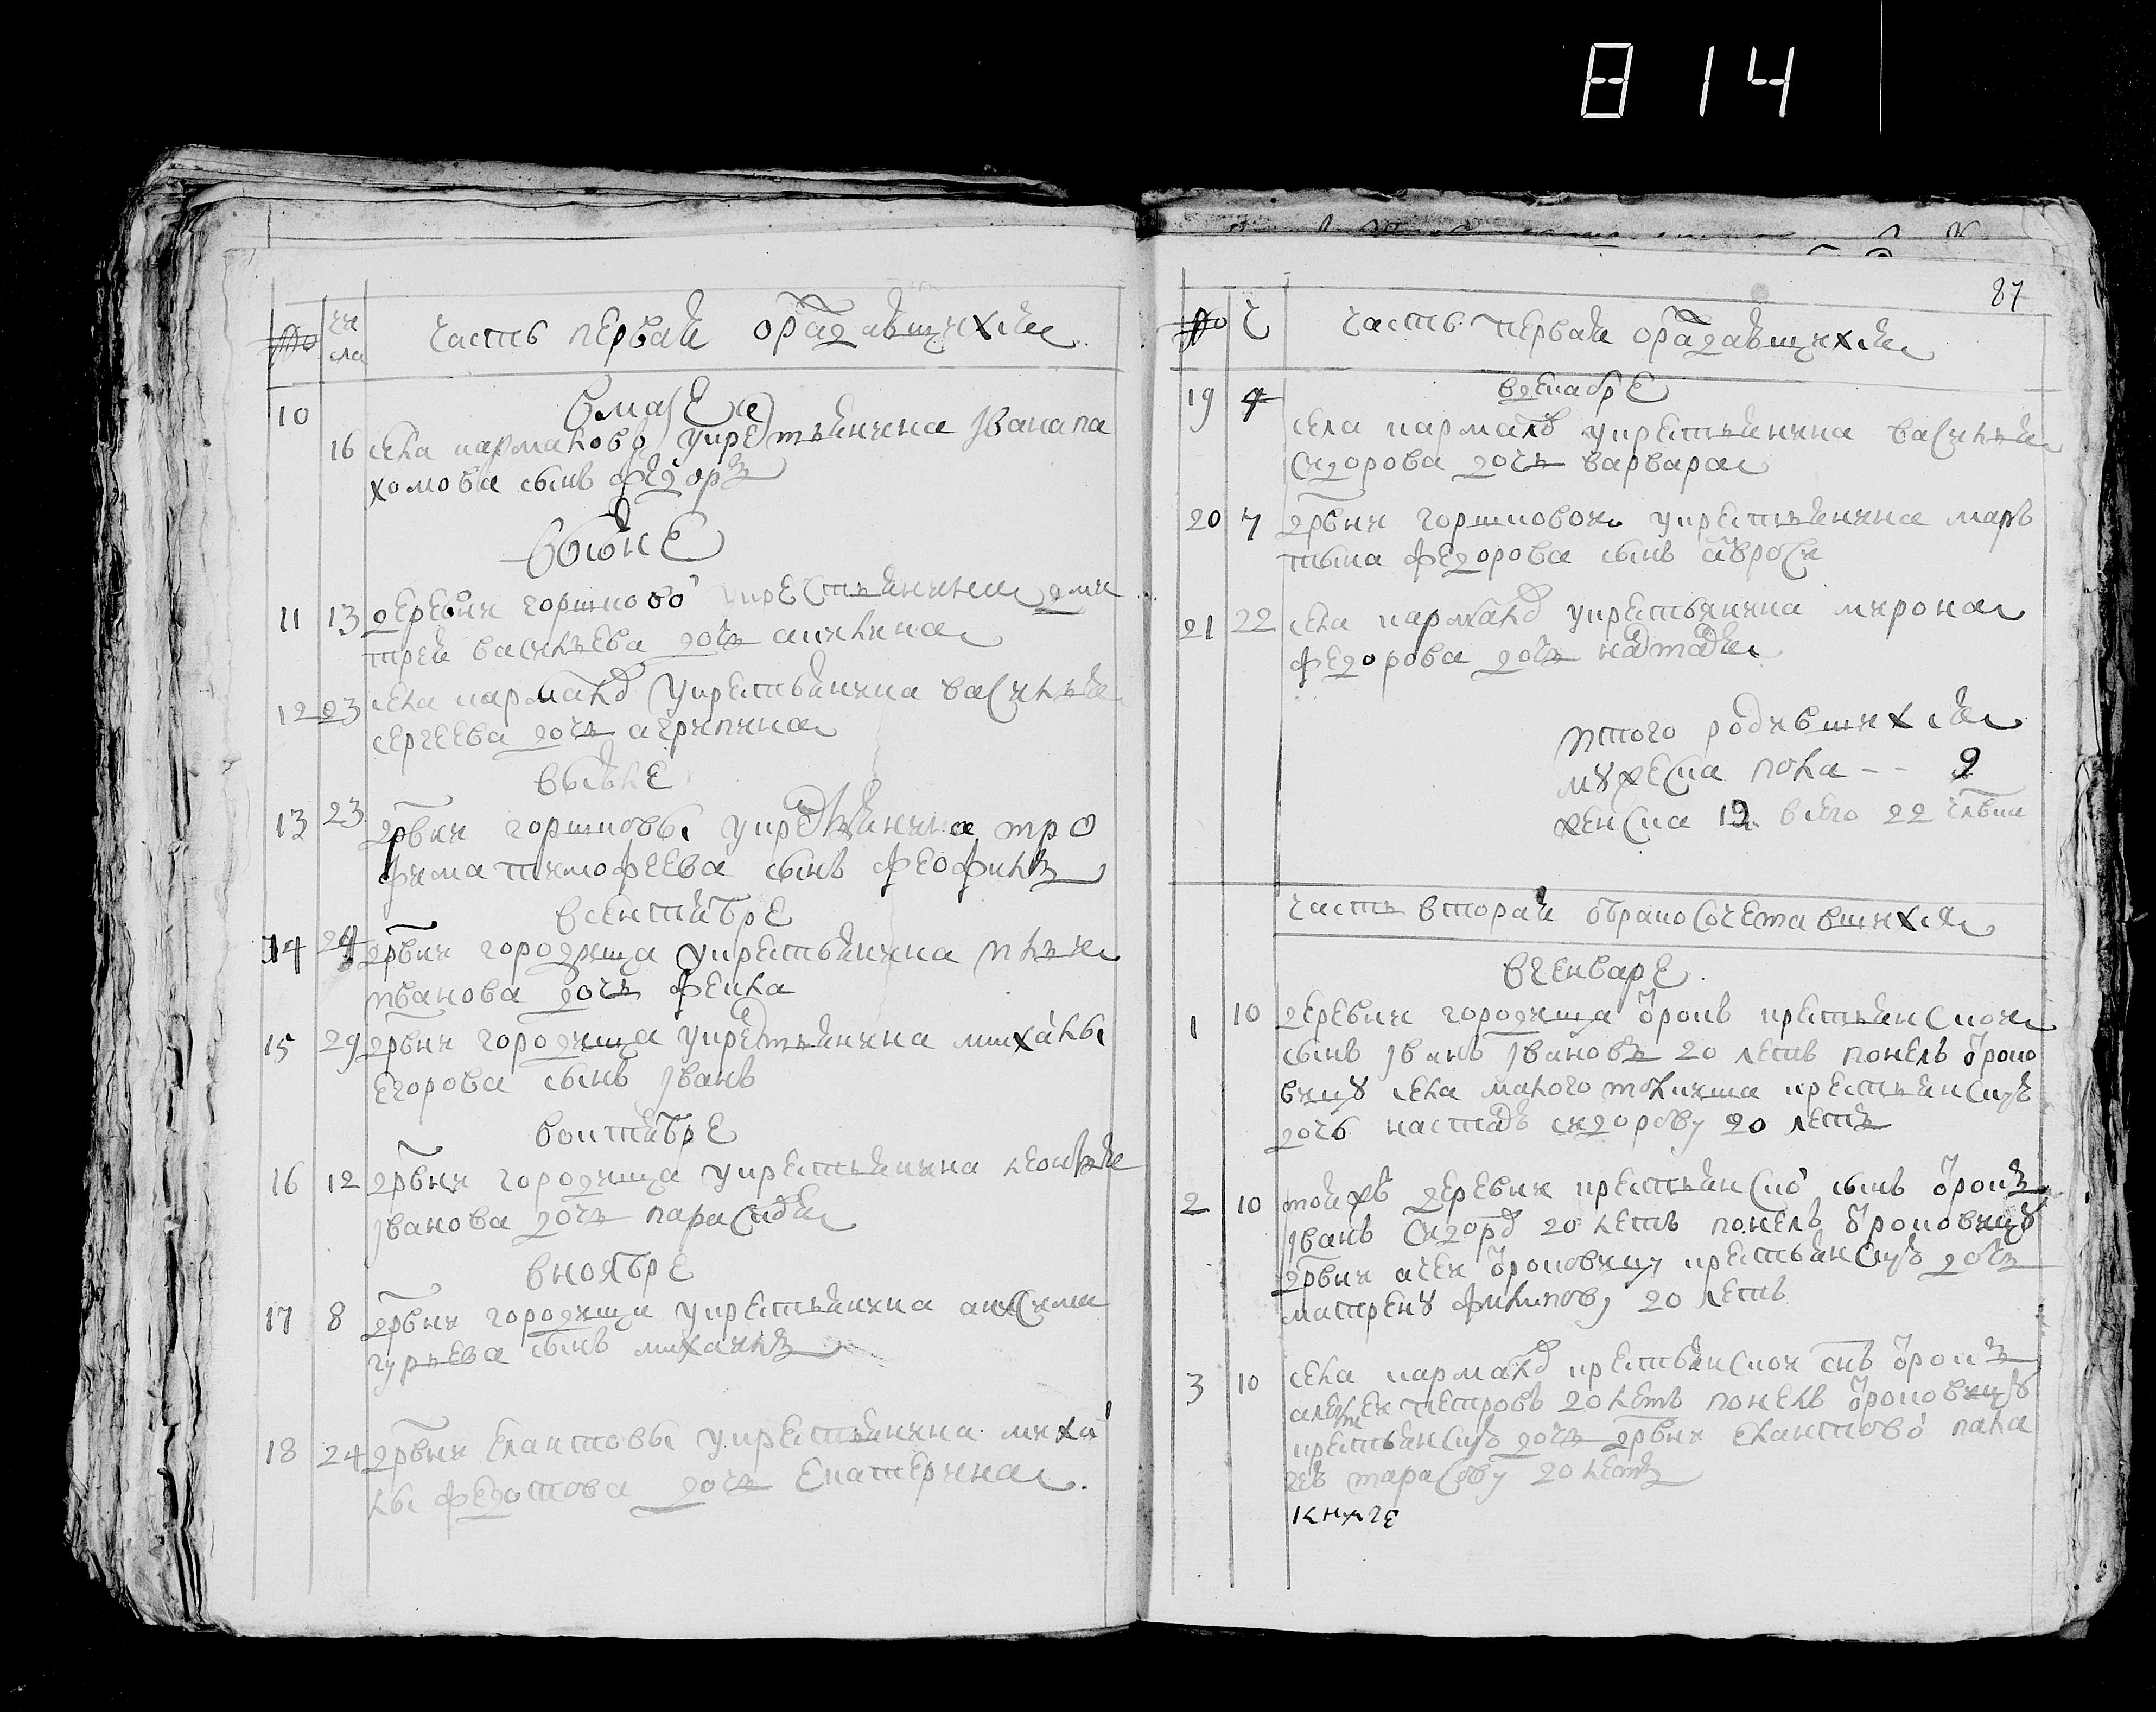 814
№ чи
сла
часть первая ораждавшихся
в маие
10
16 села кармалов у крестьянина Ивана па
хомова сынъ феѡдоръ
в ыюне
11 13 деревни горшково у крестьянина дми
трея васильева дочь акилина
12 23 села кармалов у крестьянина василья
сергеева дочь агрипина
в ыюле
13 23 дрвни горшковы у крестьянина тро
фима тимофеева сынъ феофилъ
в сентябре
14 24 дрвни городища у крестьянина ильи
иванова дочь фекла
15 29 дрвни городища у крестьянина михаилы
егорова сынъ Иванъ
в октябре
16 12 дрвни городища у крестьянина леонтья
Иванова дочь параскѡвья
в ноябре
17 8 дрвни городища у крестьянина максима
гурьева сынъ михаилъ
18 24 дрвни елактовы у крестьянина михаи
лы федотова дочь екатерина
87
№ ч
часть первая ораждавшихся
в декабре
19 4 села кармалов у крестьянина василья
сидорова дочь варвара
20 7 дрвни горшковой у крестьянина мар
тына федорова сынъ
21 22 села кармалов у крестьянина мирона
федорова дочь наталья
итого родившихся
мужеска пола -- 9
женска 12 всего 22 члвка
часть вторая о бракосочетавшихся
в генваре
1 10 деревни городища отрокъ крестьянской
сынъ Иванъ Ивановъ 20 летъ понелъ отроко
вицу села малого толкиша крестьянскую
дочь настасью сидорову 20 летъ
2 10 той жъ деревни крестьянской сынъ отрокъ
Иванъ сидоров 20 летъ понелъ отроковицу
дрвни отроковицу крестьянскую дочь
матрену филипову 20 летъ
3 10 села кармалов крестьянской снъ отрокъ
алексей петровъ 20 летъ понелъ отроковицу
крестьянскую дочь дрвни елантово пала
гею тарасову 20 летъ
книге